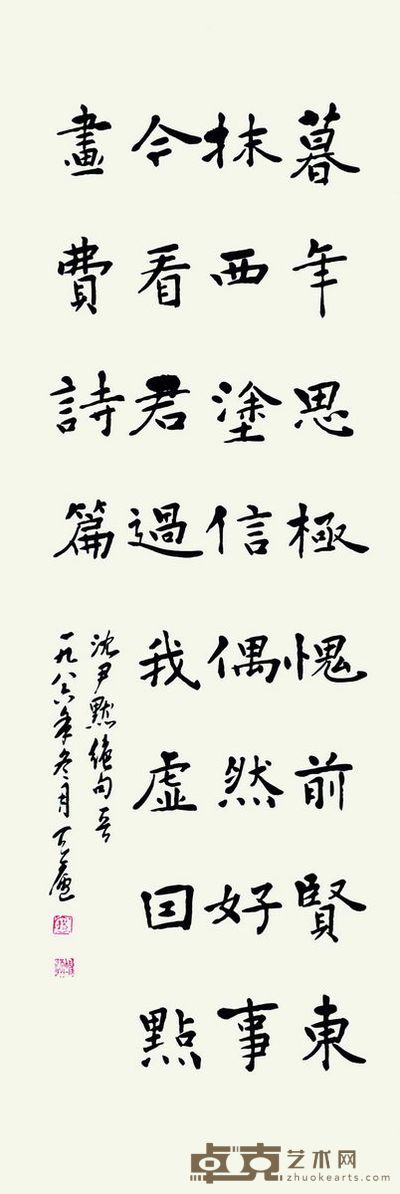 暮年思極愧前賢東
抹西塗信偶然好事
今看君過我虛囙點
畫費詩篇
沈尹默絕句一首
一九八六年冬月
卓克艺术网
zhuokearts.com